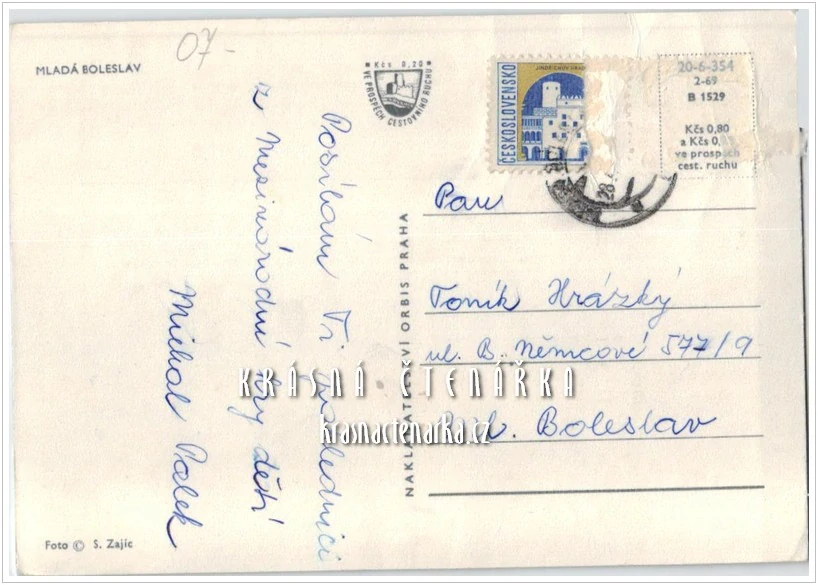 MLADÁ BOLESLAV
07-
Kčs 0,20
VE PROSPĚCH CESTOVNÍHO RUCHU
ČESKOSLOVENSKO
JINDŘICHŮV HRAD
20-6-354
2-69
B 1529
Kčs 0,80
a Kčs 0,
ve prospěch
cest. ruchu
28
Posílám Ti pohlednici
z Mezinárodní hry dětí
Michal Palek
NAKLADATELSTVÍ ORBIS PRAHA
Pan
Toník Hrázký
ul. B. Němcové 577/9
Boleslav
KRÁSNÁ ČTENÁŘKA
krasnactenarka.cz
Foto © S. Zajíc